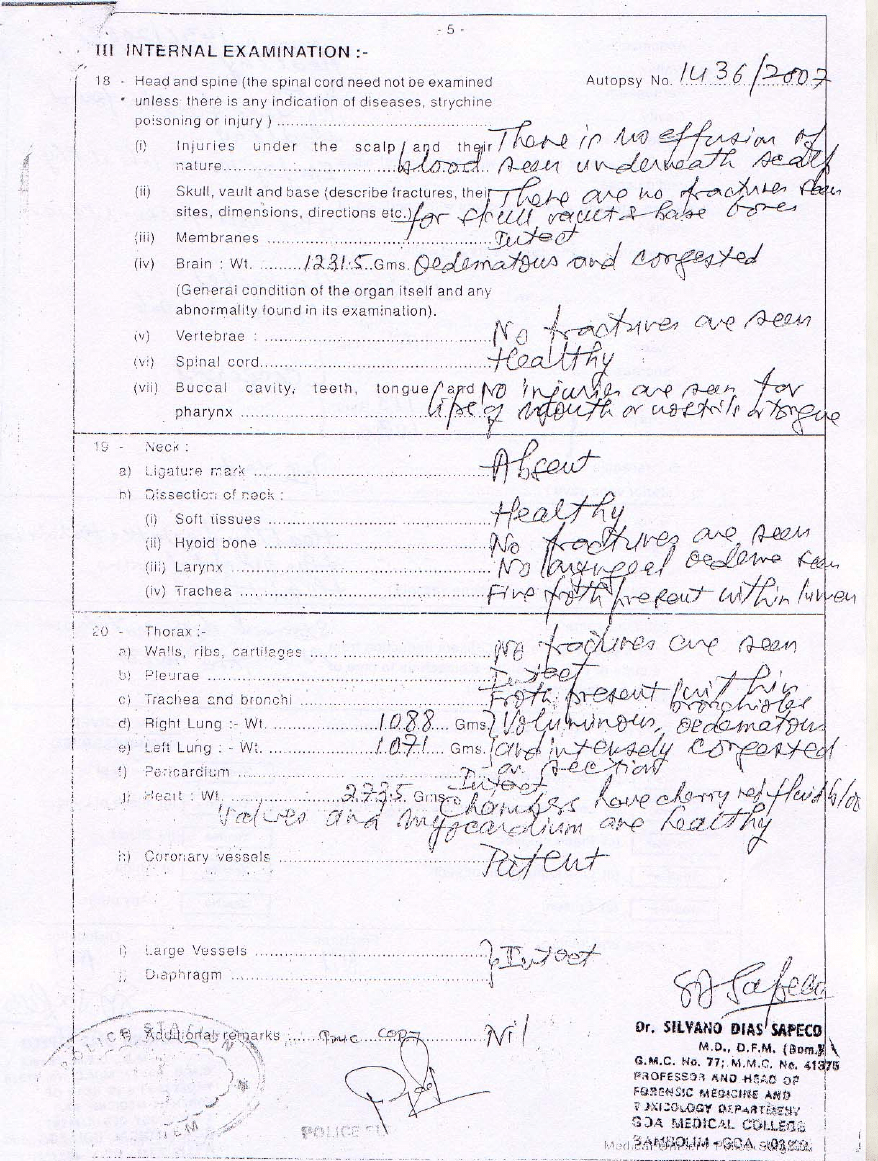 - 5 -
III INTERNAL EXAMINATION :-
18 - Head and spine (the spinal cord need not be examined Autopsy No. 1436/2007
unless there is any indication of diseases, strychine
poisoning or injury ) ..........
(i) Injuries under the scalp and their There is no effusion of
nature.......... blood seen underneath scalp
(ii) Skull, vault and base (describe fractures, their There are no fractures seen
sites, dimensions, directions etc.) for skull vault & base bones
(iii) Membranes .......... Intact
(iv) Brain : Wt. ........1231.5 Gms. Oedematous and congested
(General condition of the organ itself and any
abnormality found in its examination).
(v) Vertebrae : .......... No fractures are seen
(vi) Spinal cord.......... Healthy
(vii) Buccal cavity, teeth, tongue and No injuries are seen for
pharynx .......... lips of mouth or nostrils or tongue
19 - Neck :
a) Ligature mark .......... Absent
b) Dissection of neck :
(i) Soft tissues .......... Healthy
(ii) Hyoid bone .......... No fractures are seen
(iii) Larynx .......... No laryngeal oedema seen
(iv) Trachea .......... Fine froth present within lumen
20 - Thorax :-
a) Walls, ribs, cartilages .......... No fractures are seen
b) Pleurae .......... Intact
c) Trachea and bronchi .......... Froth present within
bronchioles
d) Right Lung :- Wt. ..........1088 Gms. } Voluminous, oedematous
e) Left Lung : - Wt. ..........1071 Gms. } and intensely congested
on section
f) Pericardium .......... Intact
g) Heart : Wt. ..........273.5 Gms Chambers have cherry red fluid blood
Valves and myocardium are healthy
h) Coronary vessels .......... Patent
i) Large Vessels .......... } Intact
j) Diaphragm ..........
k) Additional remarks : true copy Nil
Dr. SILVANO DIAS SAPECO
M.D., D.F.M. (Bom.)
G.M.C. No. 77; M.M.C. No. 41375
PROFESSOR AND HEAD OF
FORENSIC MEDICINE AND
TOXICOLOGY DEPARTMENT
GOA MEDICAL COLLEGE
BAMBOLIM-GOA
POLICE STATION
POLICE